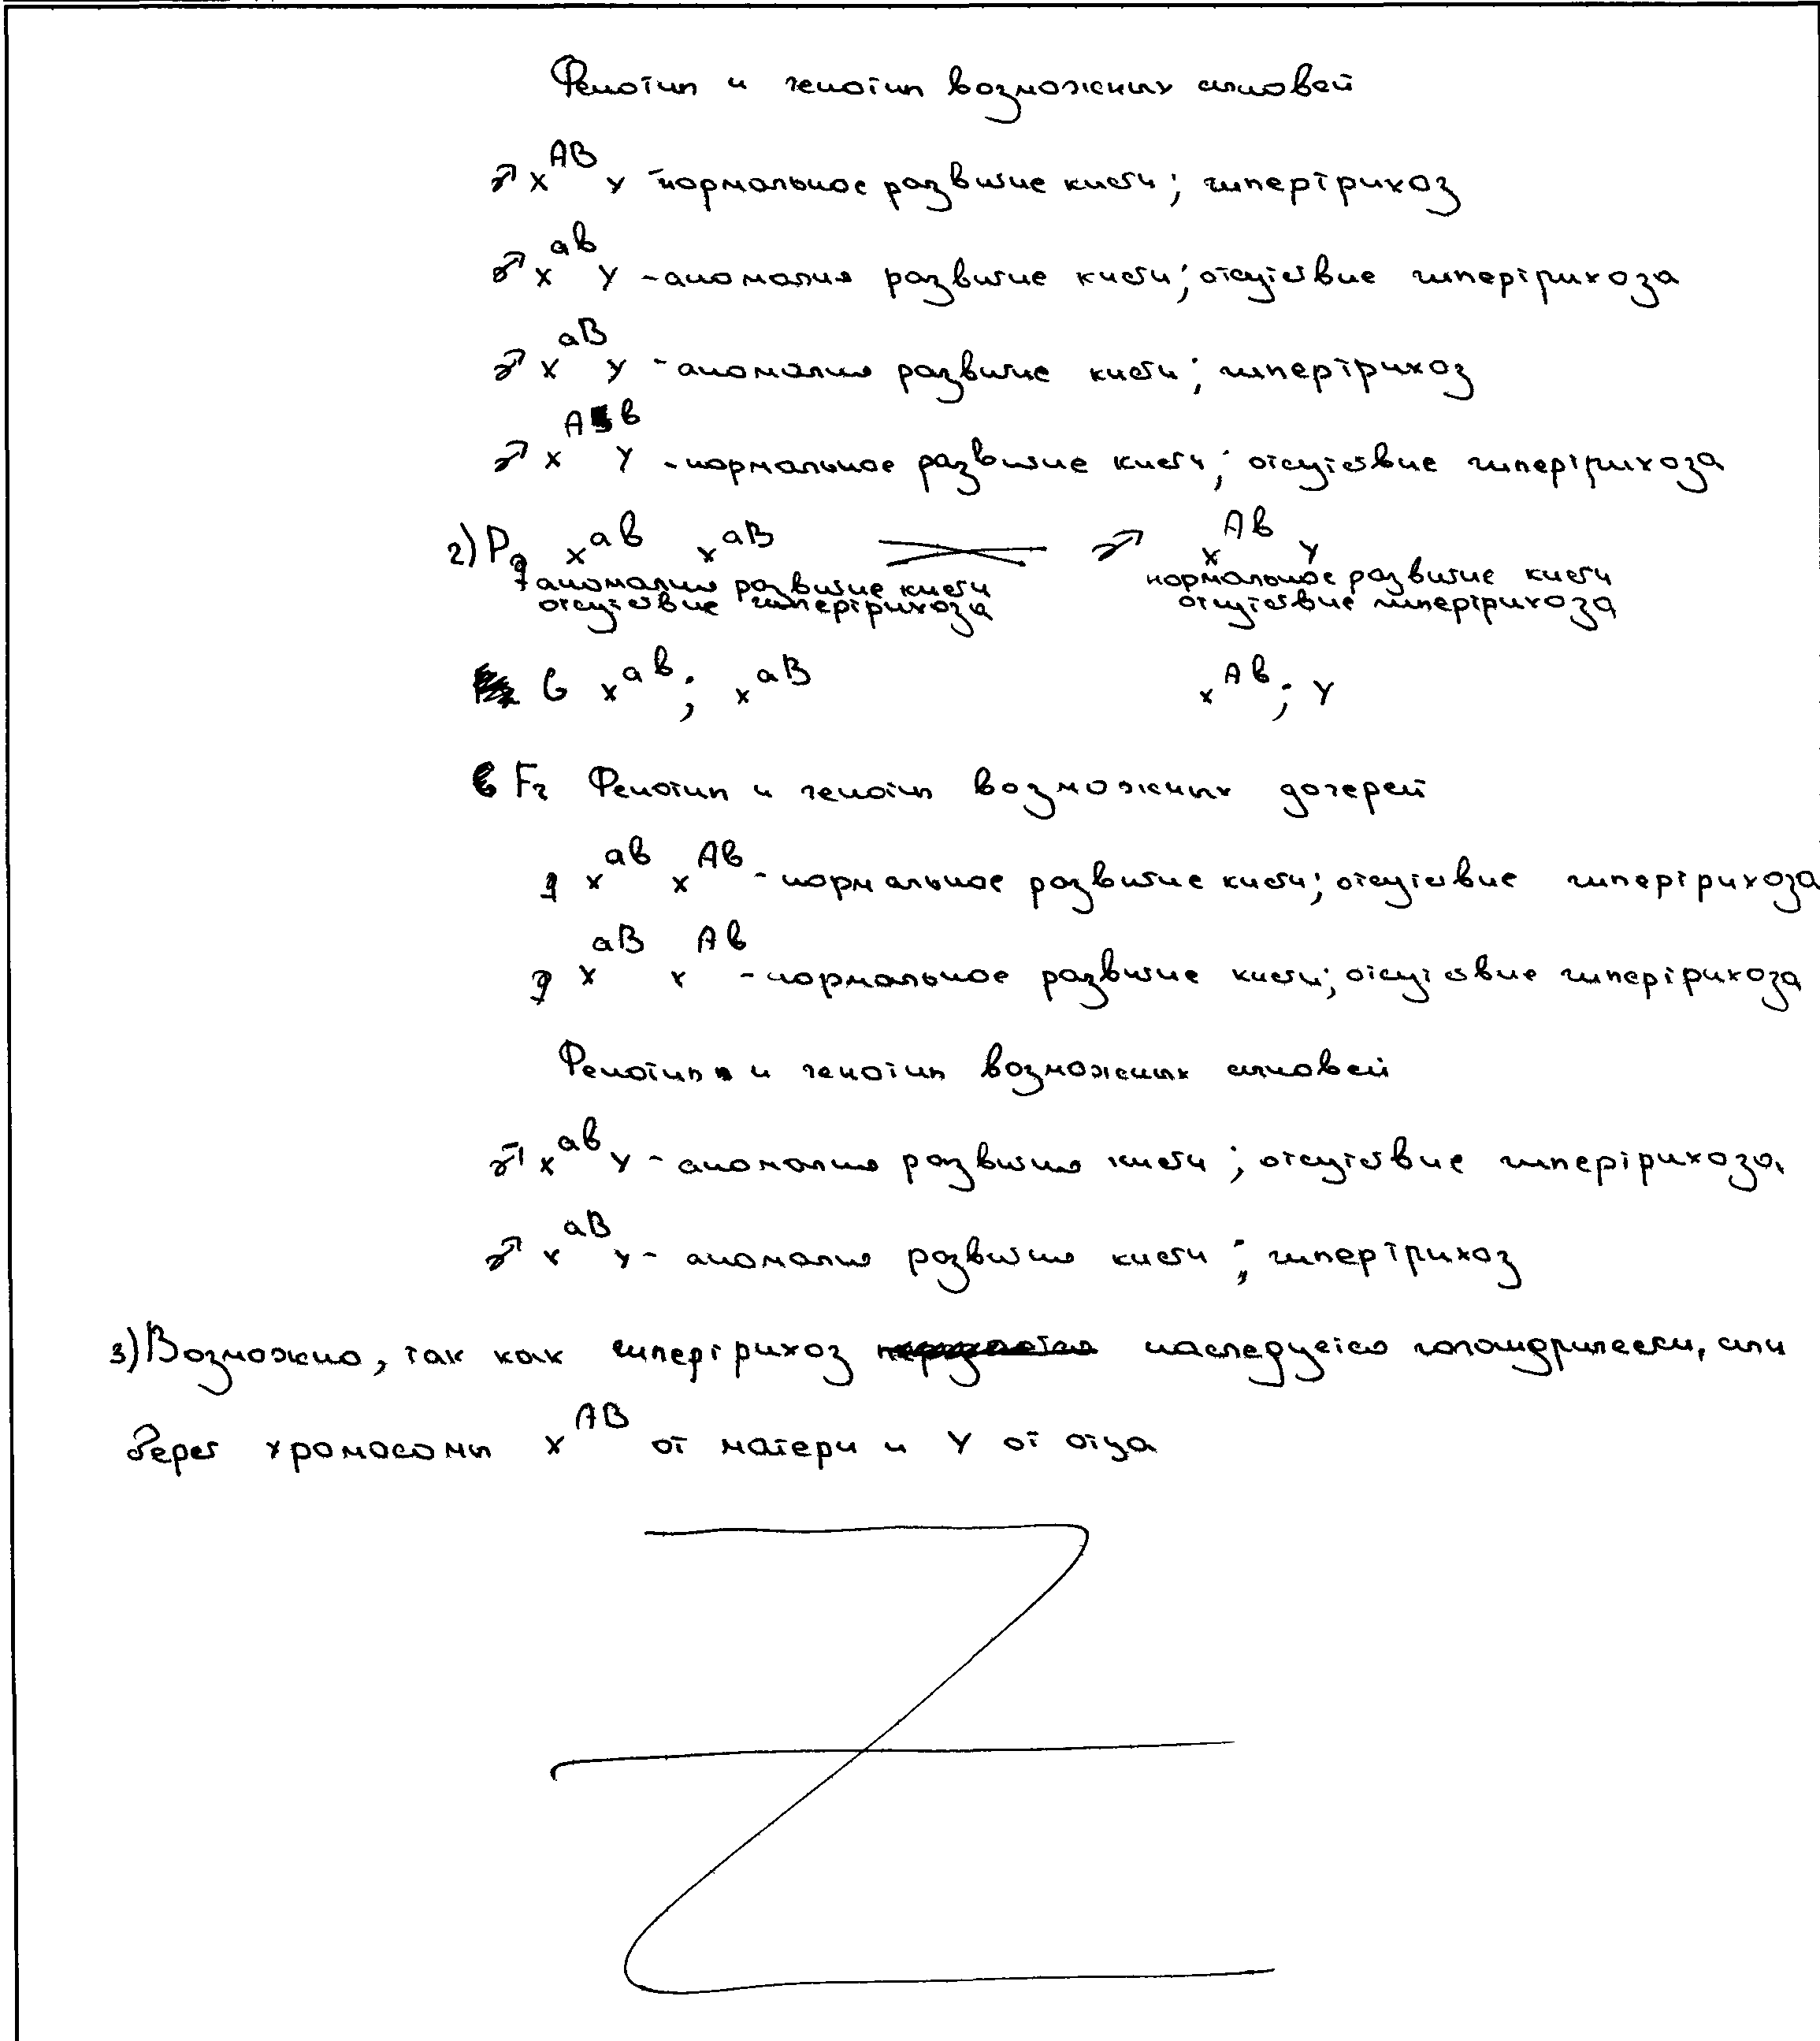 Фенотип и генотип возможных сыновей
♂ X^AB Y - нормальное развитие кисти; гипертрихоз
♂ X^ab Y - аномалия развитие кисти; отсутствие гипертрихоза
♂ X^aB Y - аномалия развитие кисти; гипертрихоз
♂ X^Ab Y - нормальное развитие кисти; отсутствие гипертрихоза
2) P ♀ X^ab X^aB × ♂ X^Ab Y
аномалия развитие кисти нормальное развитие кисти
отсутствие гипертрихоза отсутствие гипертрихоза
G X^ab; X^aB X^Ab; Y
F₂ Фенотип и генотип возможных дочерей
♀ X^ab X^Ab - нормальное развитие кисти; отсутствие гипертрихоза
♀ X^aB X^Ab - нормальное развитие кисти; отсутствие гипертрихоза
Фенотип и генотип возможных сыновей
♂ X^ab Y - аномалия развития кисти; отсутствие гипертрихоза.
♂ X^aB Y - аномалия развития кисти; гипертрихоз
3) Возможно, так как гипертрихоз наследуется голандрически, или
через хромасомы X^AB от матери и Y от отца